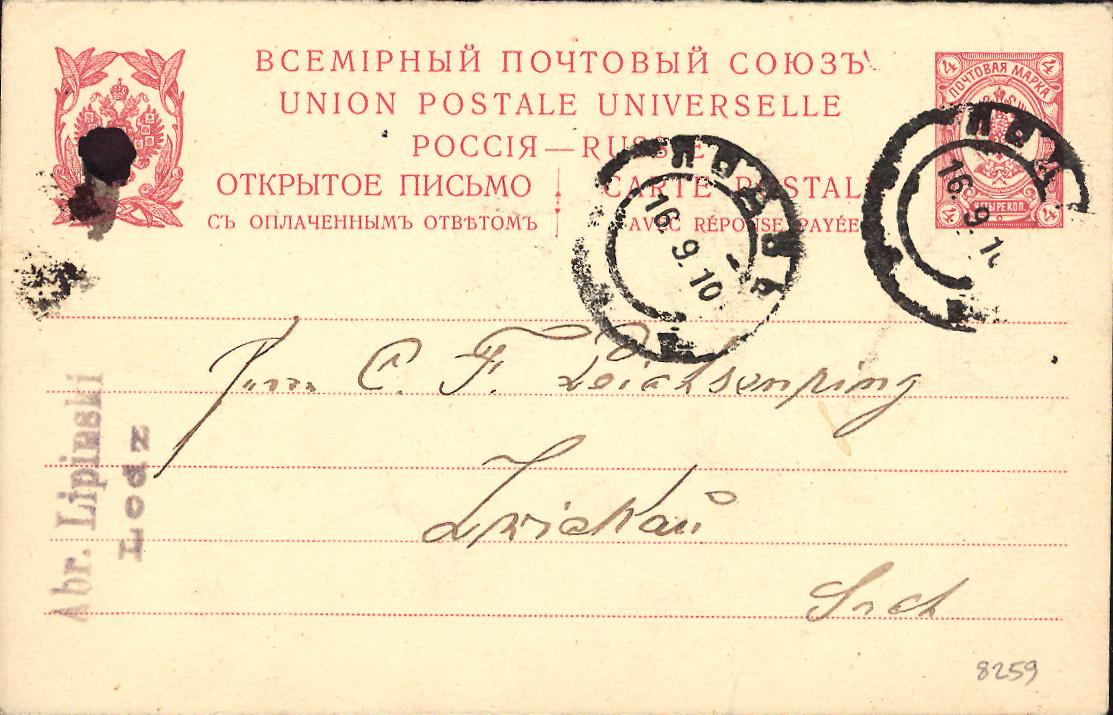 ВСЕМІРНЫЙ ПОЧТОВЫЙ СОЮЗЪ
UNION POSTALE UNIVERSELLE
РОССІЯ—RUSSIE
ОТКРЫТОЕ ПИСЬМО
СЪ ОПЛАЧЕННЫМЪ ОТВѢТОМЪ
CARTE POSTAL
AVEC RÉPONSE PAYÉE
4 4
ПОЧТОВАЯ МАРКА
ЧТЫРЕ КОП.
4 4
16.9.10
16.9.1
C. F. Leichsenring
Zwickau
Abr. Lipinski
Lodz
8259